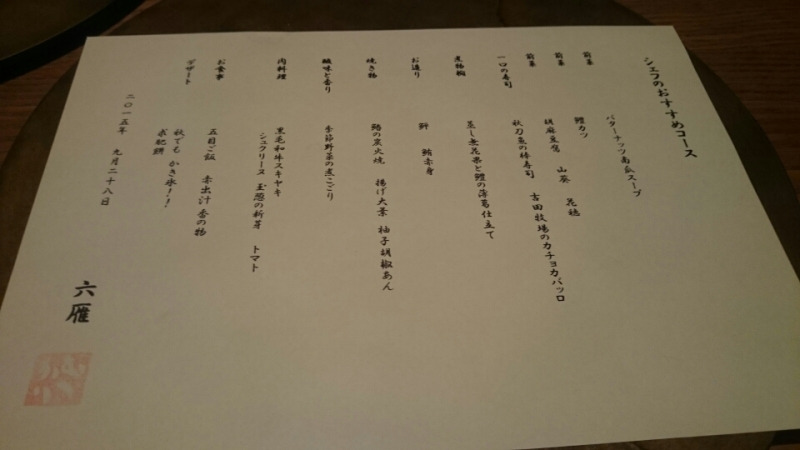 シェフのおすすめコース
バターナッツ南瓜スープ
前菜 鱧カツ
前菜 胡麻豆腐 山葵 花穂
前菜 吉田牧場のカチョカバッロ
一口の寿司 秋刀魚の棒寿司
煮物椀 蒸し無花果と鱧の薄葛仕立て
お造り 鮃 鮪赤身
焼き物 鰆の炭火焼 揚げ大葉 柚子胡椒あん
酸味と香り 季節野菜の煮こごり
肉料理 黒毛和牛スキヤキ
シュクリーヌ 玉葱の新芽 トマト
お食事 五目ご飯 赤出汁 香の物
デザート 秋でもかき氷!!
求肥餅
二〇一五年 九月二十八日
六雁